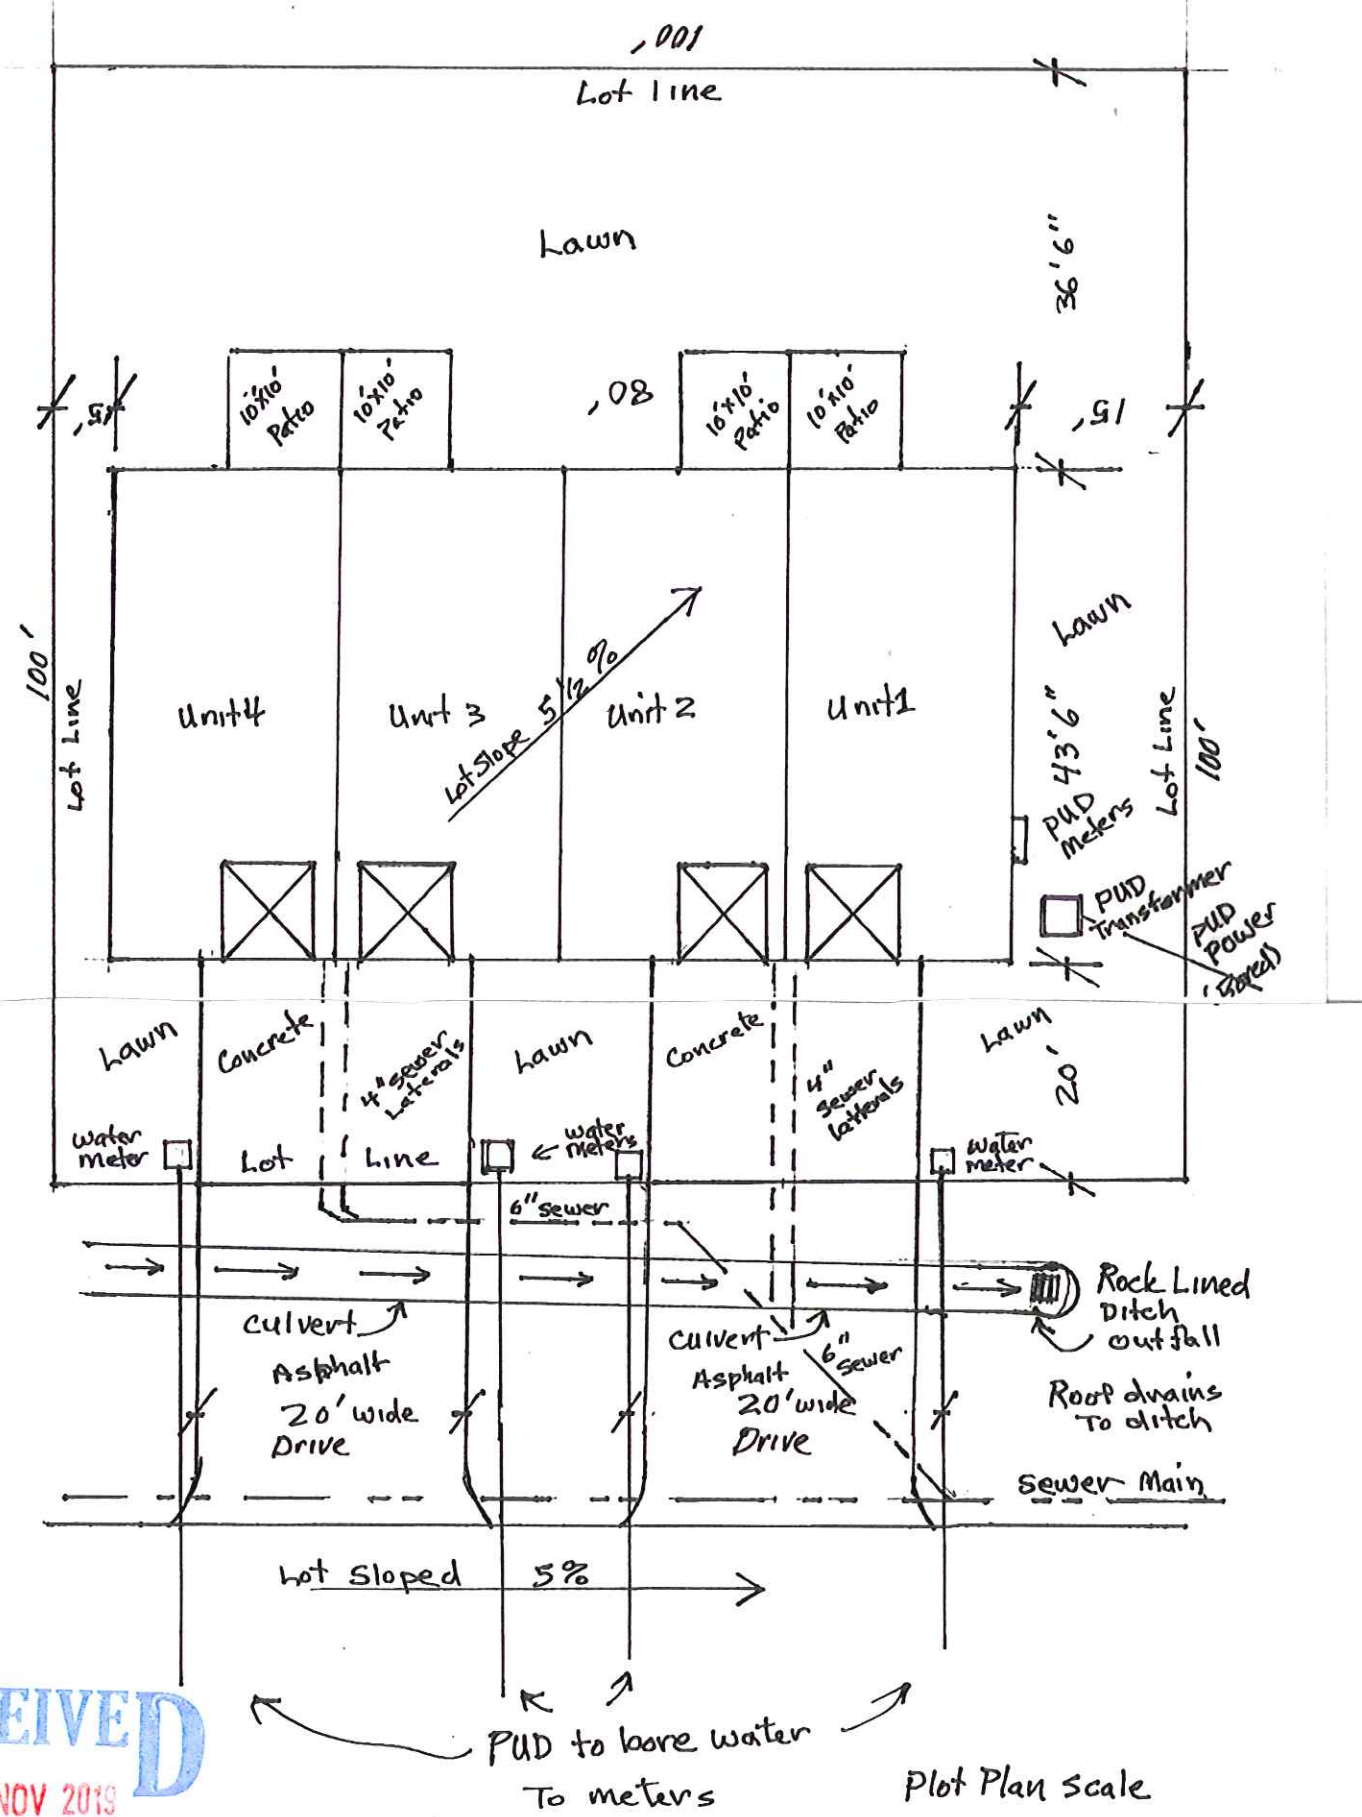 100'
Lot line
Lawn
36'6"
10'x10'
Patio
10'x10'
Patio
80'
10'x10'
Patio
10'x10'
Patio
5'
15'
100'
Lot Line
Unit 4
Unit 3
Lot Slope 5 1/2 %
Unit 2
Unit 1
Lawn
43'6"
Lot Line
100'
PUD
Meters
PUD
Transformer
PUD
Power
(Bored)
Lawn
Concrete
4" sewer
Laterals
Lawn
Concrete
4"
Sewer
Latterals
Lawn
20'
water
meter
Lot Line
water
meters
water
meter
6" sewer
Culvert
Asphalt
20' wide
Drive
Culvert
6"
sewer
Asphalt
20' wide
Drive
Rock Lined
Ditch
outfall
Roof drains
To ditch
Sewer Main
Lot Sloped 5%
PUD to bore water
To meters
Plot Plan scale
EIVED
NOV 2019